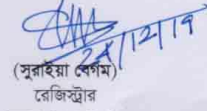 (সুরাইয়া বেগম)
রেজিস্ট্রার